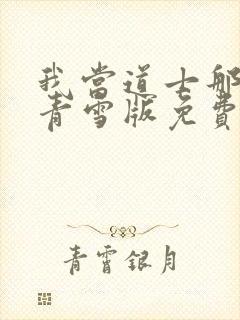 我當道士那
青雪版免費
青霄銀月